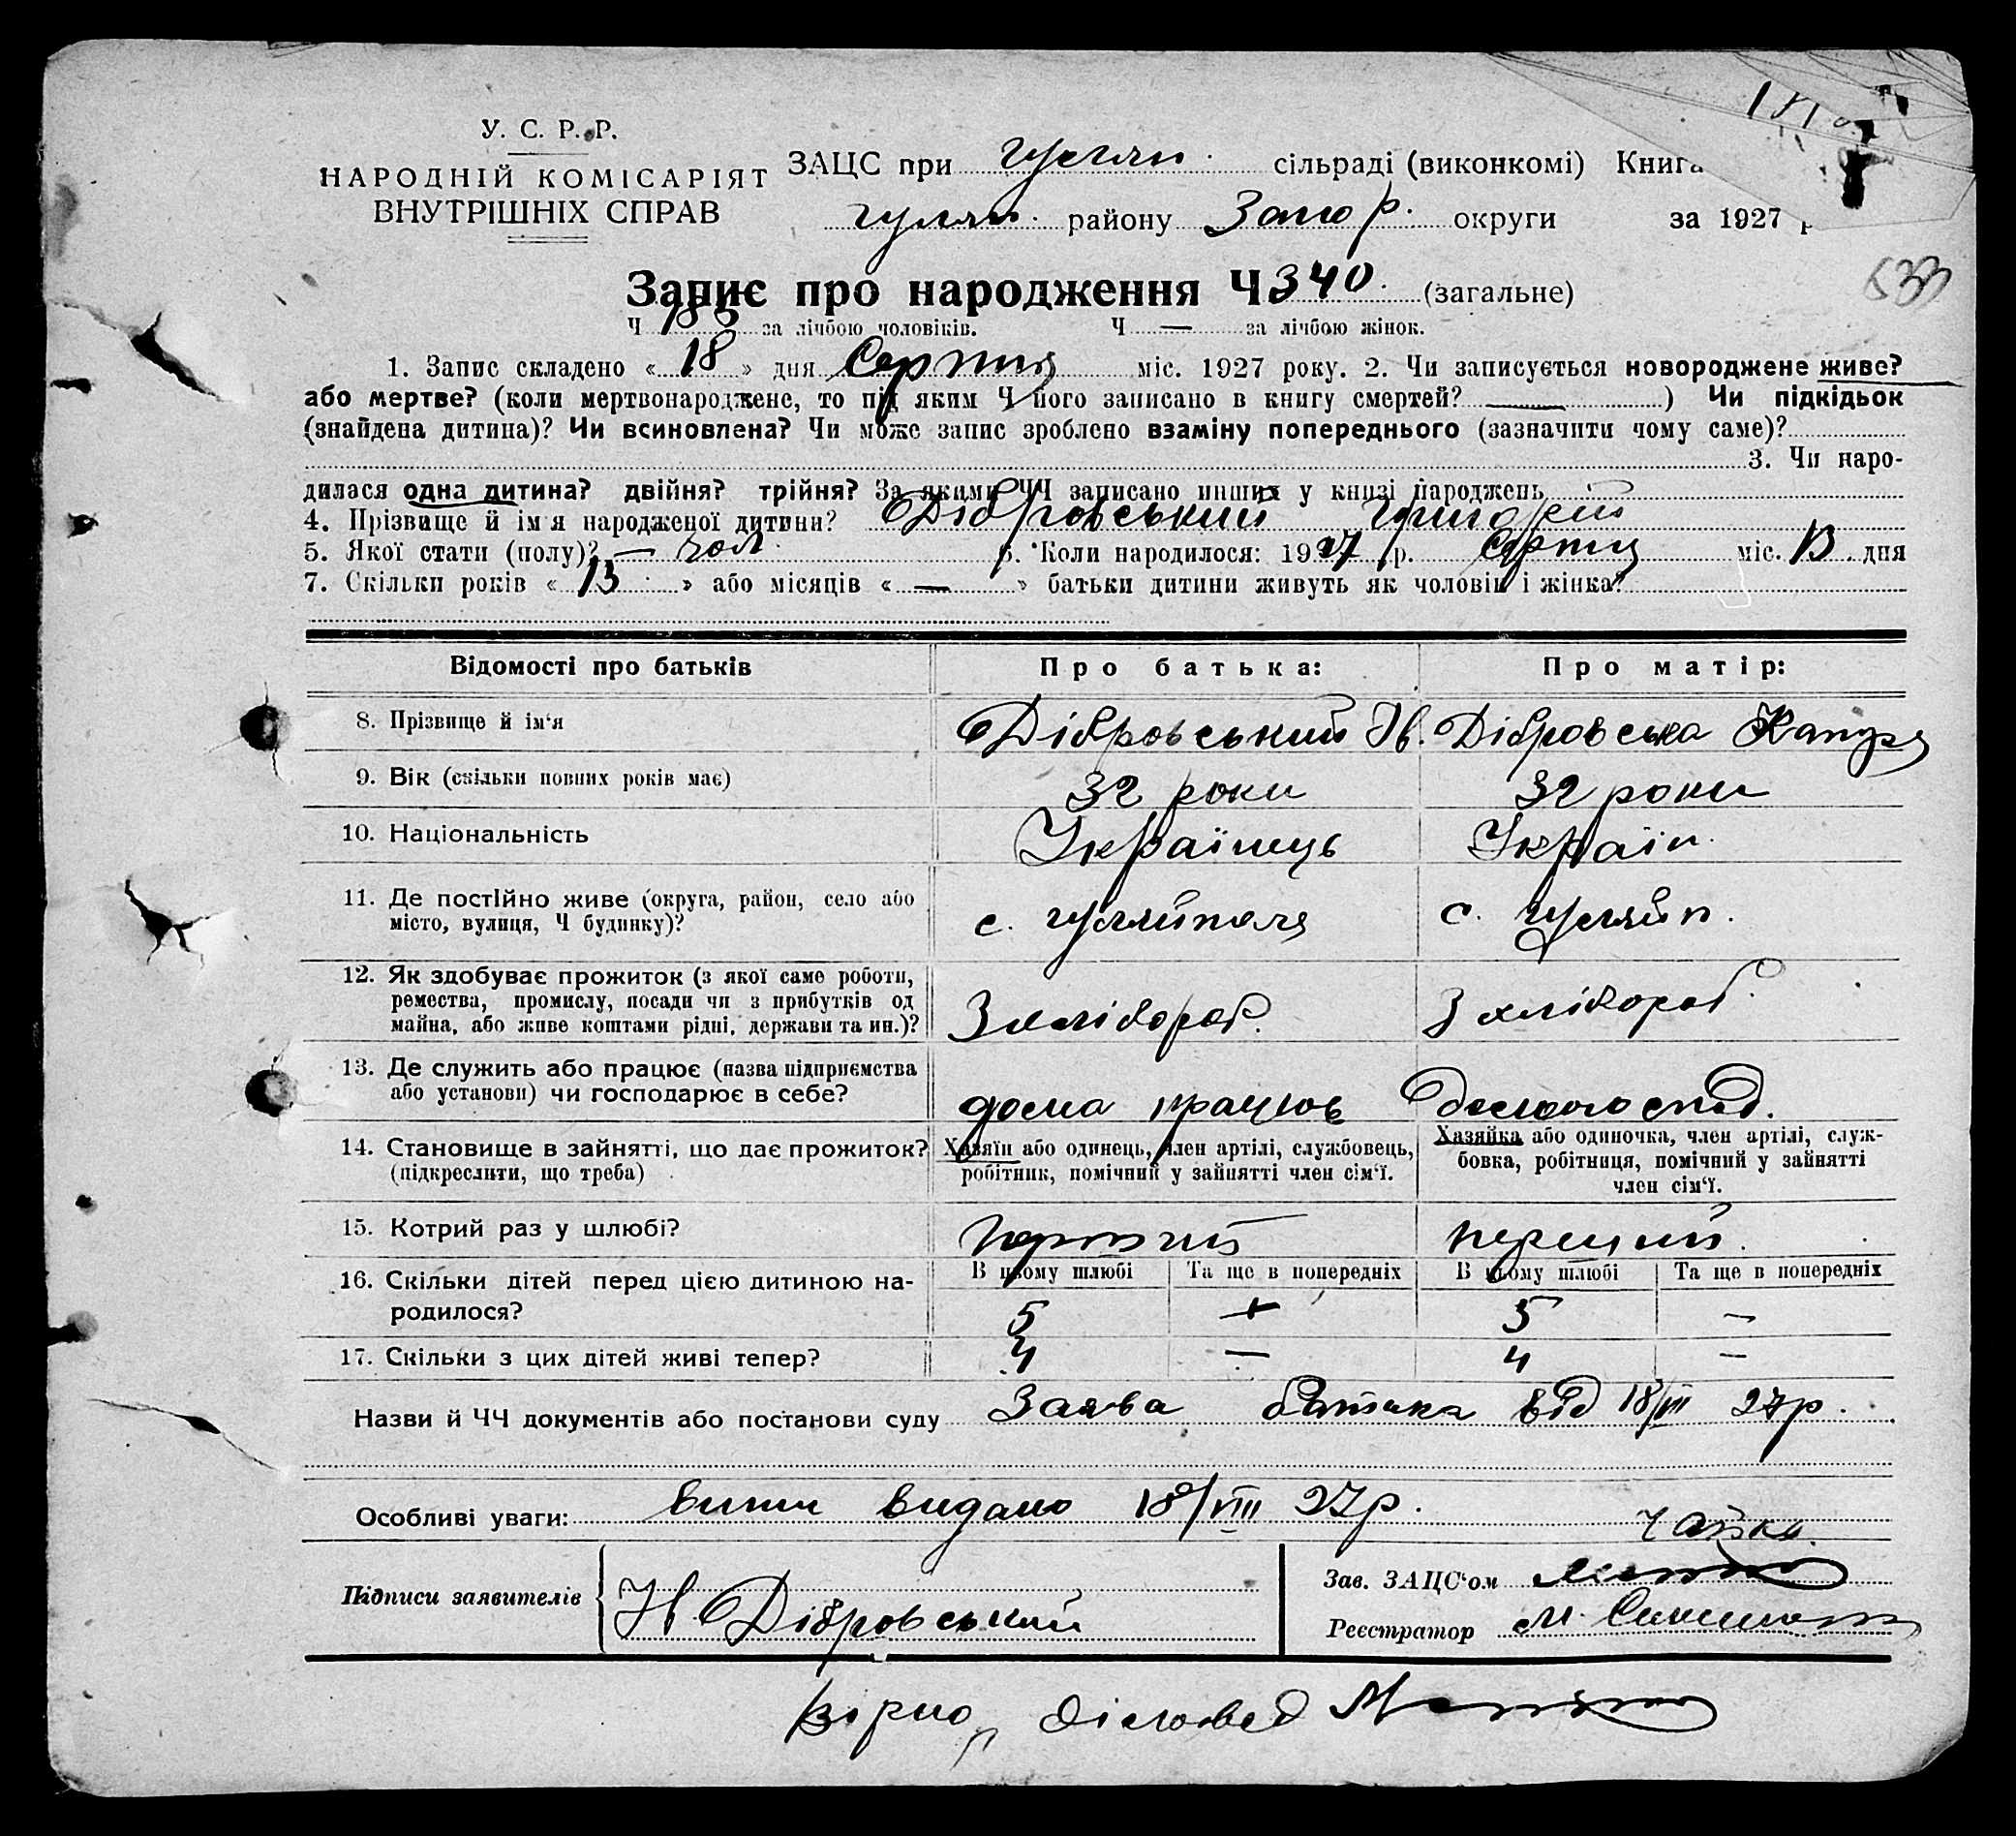 У. С. Р. Р.
НАРОДНІЙ КОМІСАРІЯТ
ВНУТРІШНІХ СПРАВ
ЗАЦС при Гуляй. сільраді (виконкомі) Книга
Гуляй. району Запор. округи за 1927 р
633
Запис про народження Ч 340. (загальне)
Ч 188 за лічбою чоловіків. Ч — за лічбою жінок.
1. Запис складено « 18 » дня Серпня міс. 1927 року. 2. Чи записується новороджене живе?
або мертве? (коли мертвонароджене, то під яким Ч його записано в книгу смертей? —) Чи підкідьок
(знайдена дитина)? Чи всиновлена? Чи може запис зроблено взаміну попереднього (зазначити чому саме)?
3. Чи наро-
дилася одна дитина? двійня? трійня? За якими ЧЧ записано инших у книзі народжень
4. Прізвище й ім'я народженої дитини? Дібровський Григорій
5. Якої стати (полу)? — чол. 6. Коли народилося: 1927 р. Серпня міс. 13 дня
7. Скільки років « 13 » або місяців « — » батьки дитини живуть як чоловік і жінка?
Відомості про батьків Про батька: Про матір:
8. Прізвище й ім'я Дібровський Ів. Дібровська
9. Вік (скільки повних років має) 32 роки 32 роки
10. Національність Українець Україн.
11. Де постійно живе (округа, район, село або
місто, вулиця, Ч будинку)? с. Гуляйполя с. Гуляйп.
12. Як здобуває прожиток (з якої саме роботи,
ремества, промислу, посади чи з прибутків од
майна, або живе коштами рідні, держави та ин.)? З хлібороб. З хлібороб.
13. Де служить або працює (назва підприємства
або установи) чи господарює в себе? дома працює
14. Становище в зайнятті, що дає прожиток?
(підкреслити, що треба)
Хазяїн або одинець, член артілі, службовець,
робітник, помічний у зайнятті член сім'ї.
Хазяйка або одиночка, член артілі, служ-
бовка, робітниця, помічний у зайнятті
член сім'ї.
15. Котрий раз у шлюбі? первий перший.
В цьому шлюбі Та ще в попередніх В цьому шлюбі Та ще в попередніх
16. Скільки дітей перед цією дитиною на-
родилося? 5 + 5 —
17. Скільки з цих дітей живі тепер? 4 — 4 —
Назви й ЧЧ документів або постанови суду Заява батька від 18/VIII 27р.
Особливі уваги: видано 18/VIII 27р.
Чайка
Підписи заявителів
Ів Дібровський
Зав. ЗАЦС'ом
Реєстратор М.
Вірно, Діловод